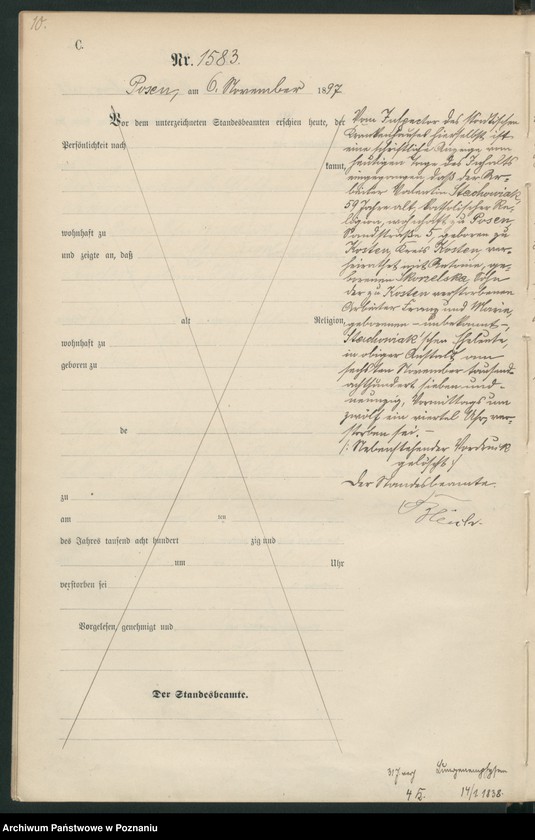 10.
C.
Nr. 1583.
Posen, am 6. November 1897
Vor dem unterzeichneten Standesbeamten erschien heute, der
Persönlichkeit nach
kannt,
wohnhaft zu
und zeigte an, daß
alt Religion,
wohnhaft zu
geboren zu
de
zu
am ten
des Jahres tausend acht hundert zig und
um Uhr
verstorben sei
Vorgelesen, genehmigt und
Der Standesbeamte.
Vom Inspector des städtischen
Krankenhauses hierselbst ist
eine schriftliche Anzeige vom
heutigen Tage des Inhalts
eingegangen, daß der Ar-
beiter Valentin Stachowiak,
59 Jahre alt, katholischer Re-
ligion, wohnhaft zu Posen,
Sandstraße 5, geboren zu
Kosten, Kreis Kosten, ver-
heirathet mit Antonie, ge-
borenen Skorzelska, Sohn
der zu Kosten verstorbenen
Arbeiter Franz und Marie,
geborenen - unbekannt -
Stachowiak'schen Eheleute,
in obiger Anstalt, am
sechsten November tausend
achthundert sieben und
neunzig, Vormittags um
zwölf ein viertel Uhr, ver-
storben sei. -
/: Nebenstehender Vordruck
gelöscht :/
Der Standesbeamte.
Lungenemphysem
14/2 1838.
Archiwum Państwowe w Poznaniu